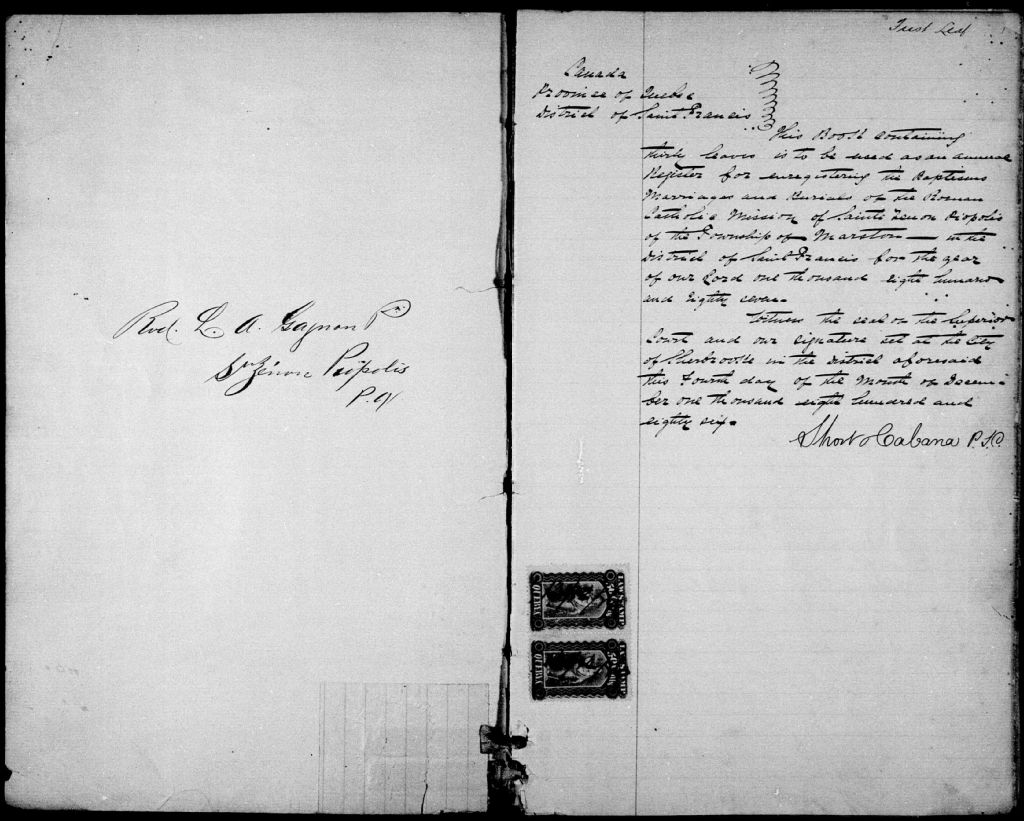 Revd. L. A. Gagnon Ptre
St Zénon Piopolis
P. Q
First Leaf
Canada
Province of Quebec
District of Saint Francis
This Book containing
thirty leaves is to be used as an annual
Register for enregistering the Baptisms
Marriages and Burials of the Roman
Catholic Mission of Sainte Zenon Piopolis
of the Township of Marston — in the
District of Saint Francis for the year
of our Lord one thousand eight hundred
and Eighty seven.
Witness the seal of the Superior
Court and our signature set at the City
of Sherbrooke in the District aforesaid
this Fourth day of the Month of Decem-
ber one thousand eight hundred and
eighty six.
Short & Cabana P.S.C.
LAW STAMP
QUEBEC
LAW STAMP
QUEBEC